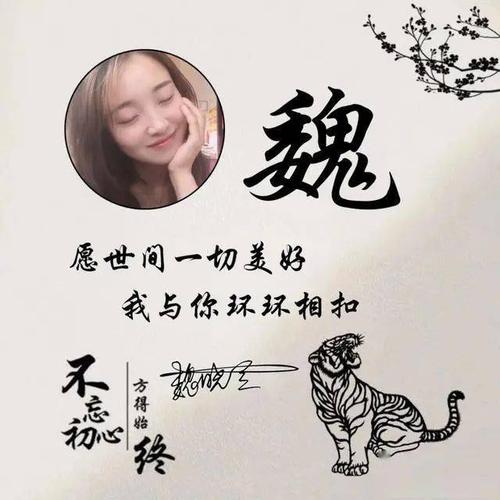 魏
愿世间一切美好
我与你环环相扣
不忘初心
方得始终